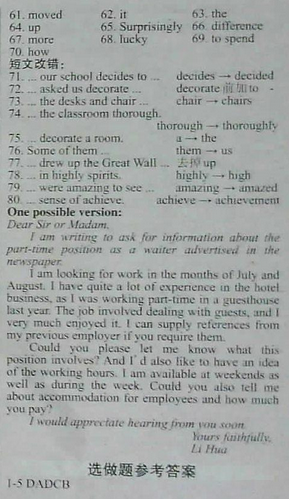 61. moved 62. it 63. the
64. up 65. Surprisingly 66. difference
67. more 68. lucky 69. to spend
70. how
短文改错：
71. ... our school decides to ... decides → decided
72. ... asked us decorate ... decorate 前加 to
73. ... the desks and chair ... chair → chairs
74. ... the classroom thorough.
thorough → thoroughly
75. ... decorate a room. a → the
76. Some of them ... them → us
77. ... drew up the Great Wall ... 去掉 up
78. ... in highly spirits. highly → high
79. ... were amazing to see ... amazing → amazed
80. ... sense of achieve. achieve → achievement
One possible version:
Dear Sir or Madam,
I am writing to ask for information about the
part-time position as a waiter advertised in the
newspaper.
I am looking for work in the months of July and
August. I have quite a lot of experience in the hotel
business, as I was working part-time in a guesthouse
last year. The job involved dealing with guests, and I
very much enjoyed it. I can supply references from
my previous employer if you require them.
Could you please let me know what this
position involves? And I'd also like to have an idea
of the working hours. I am available at weekends as
well as during the week. Could you also tell me
about accommodation for employees and how much
you pay?
I would appreciate hearing from you soon.
Yours faithfully,
Li Hua
选做题参考答案
1-5 DADCB